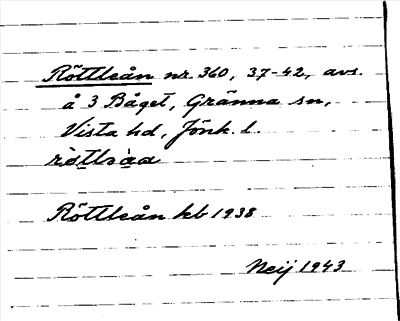 Röttleån nr. 360, 37-42, avs.
å 3 Båget, Gränna sn,
Vista hd, Jönk. l.
Röttleån kb 1938
Neij 1943